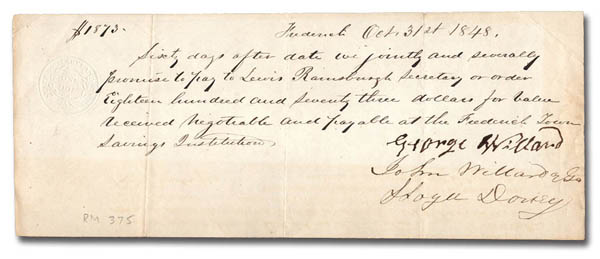 $1873. Frederick Oct. 31st 1848.
Sixty days after date we jointly and severally
promise to pay to Lewis Ramsburgh Secretary or order
Eighteen hundred and seventy three dollars for value
received negotiable and payable at the Frederick Town
Savings Institution
George Willard
John Willard
Lloyd Dorsey
RM 375